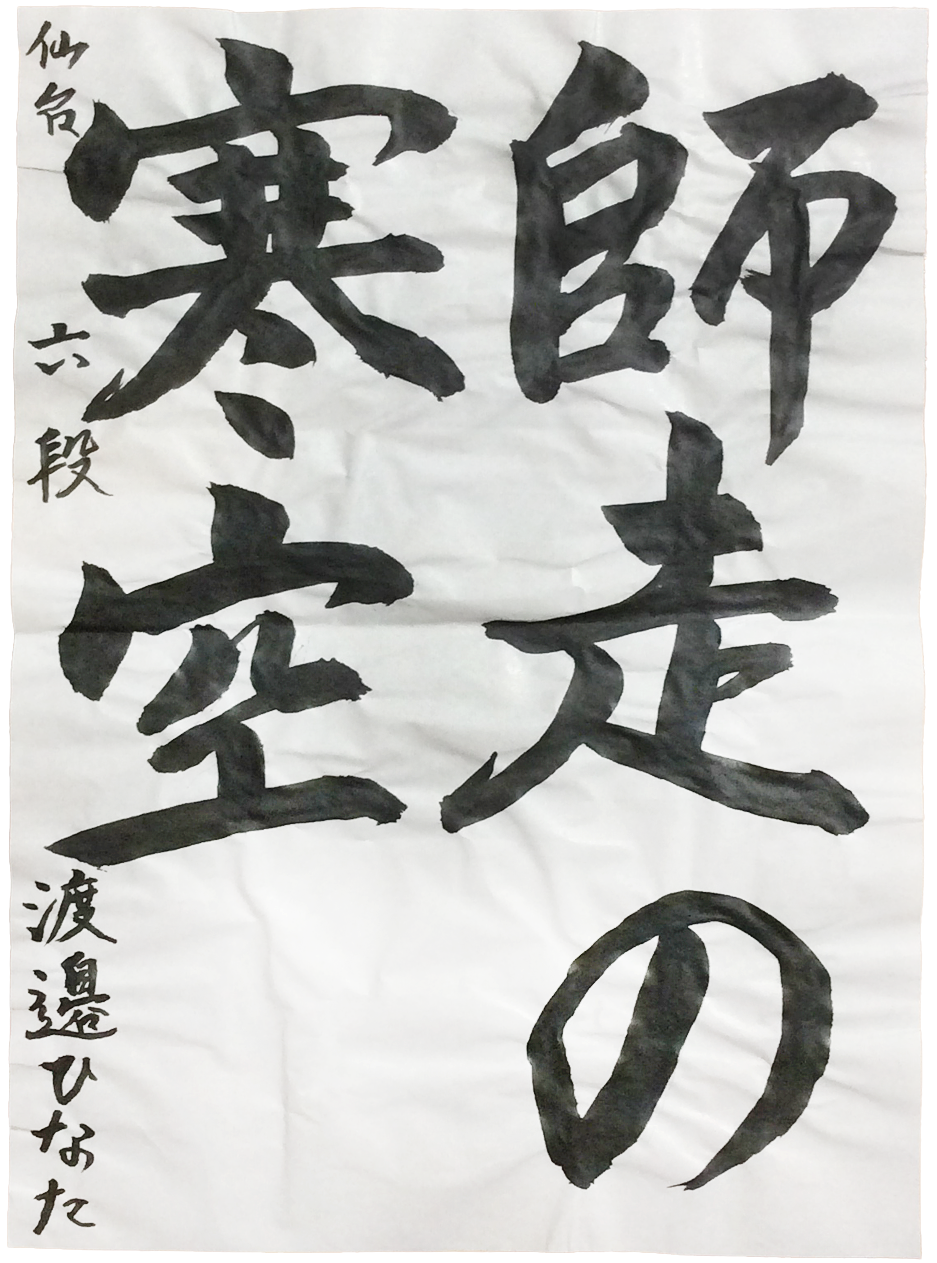 師走の
寒空
仙台 六段 渡邉ひなた